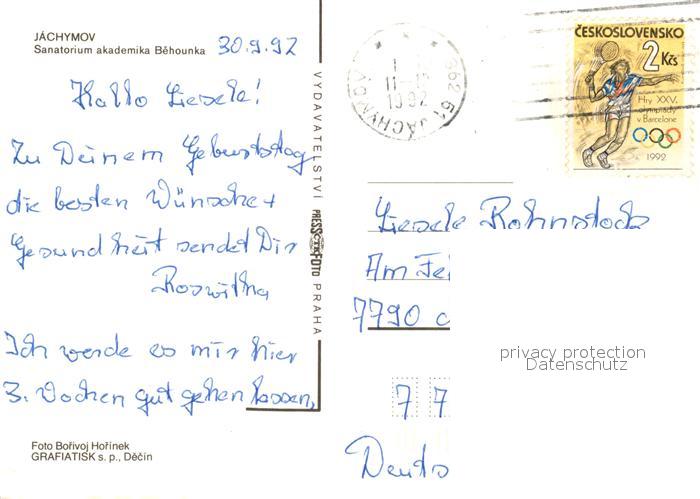 JÁCHYMOV
Sanatorium akademika Běhounka
30.9.92
Hallo Liesele!
Zu Deinem Geburtstag
die besten Wünsche +
Gesundheit sendet Dir
Roswitha
Ich werde es mir hier
3. Wochen gut gehen lassen,
Foto Bořivoj Hořínek
GRAFIATISK s. p., Děčín
VYDAVATELSTVÍ PRESSFOTO PRAHA
362 51 JÁCHYMOV
1992
ČESKOSLOVENSKO
2 Kčs
Hry XXV.
olympiády
v Barceloně
1992
Liesele Rohnstock
Am Fe
7790
privacy protection
Datenschutz
7 7
Deuts